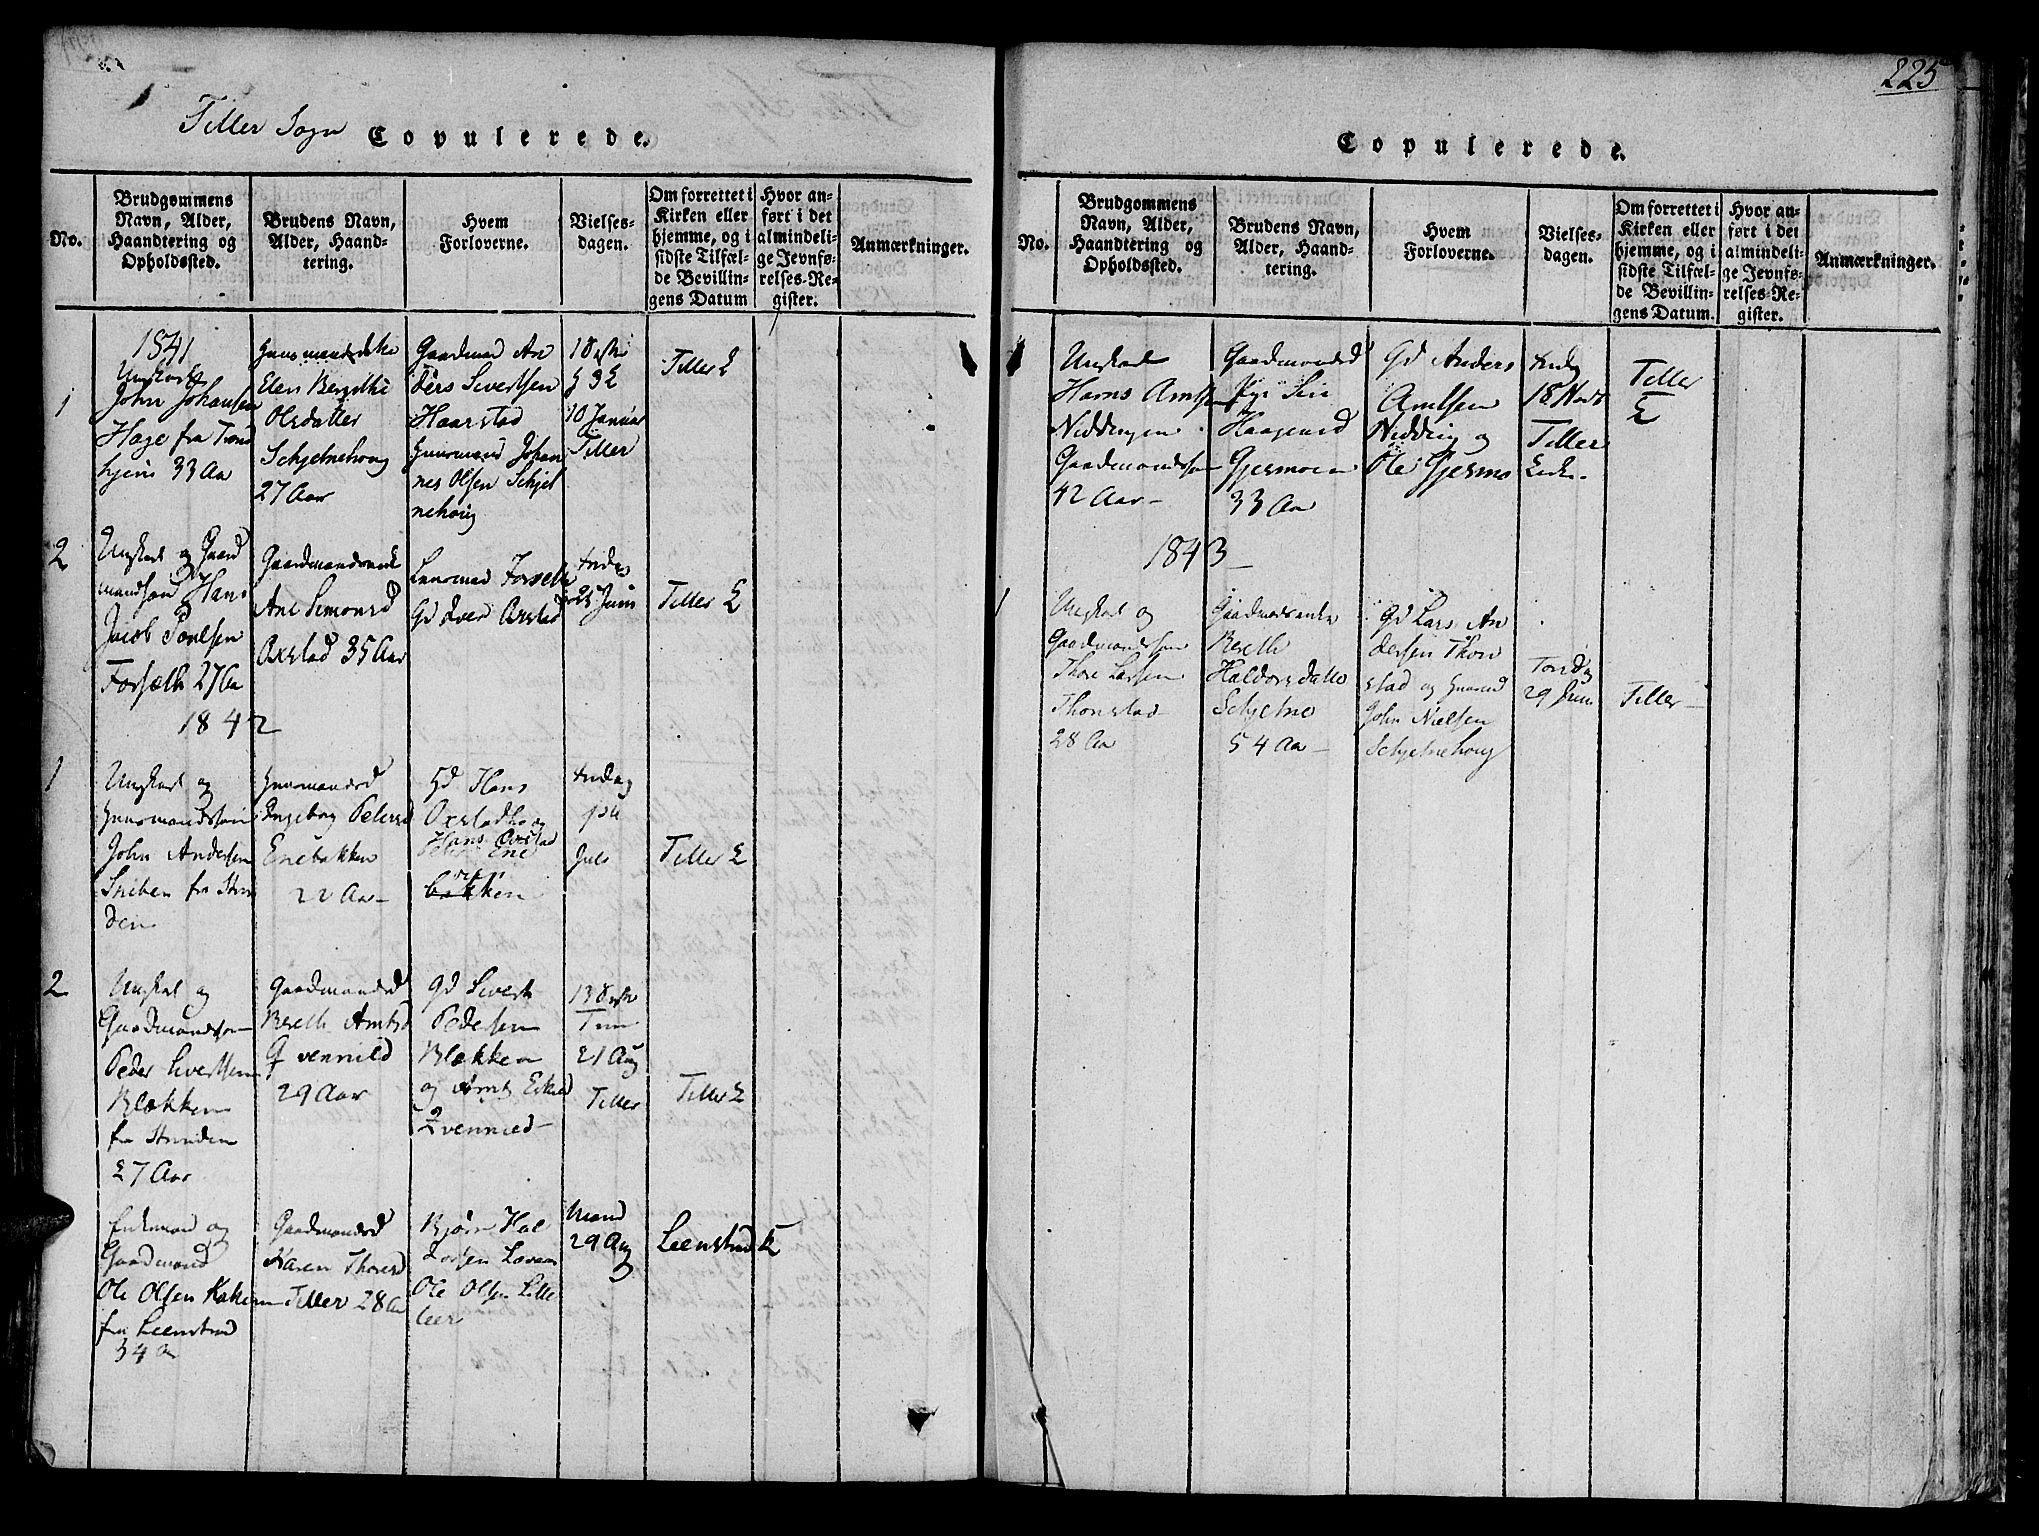 225
Tiller Sogn
Copulerede.
No.
Brudgommens
Navn, Alder,
Haandtering og
Opholdssted.
Brudens Navn,
Alder, Haand-
tering.
Hvem
Forloverne.
Vielses-
dagen.
Om forrettet i
Kirken eller
hjemme, og i
sidste Tilfæl-
de Bevillin-
gens Datum
Hvor an-
ført i det
almindeli-
ge Jevnfø-
relses-Re-
gister.
Anmærkninger.
1841
1
Ungkarl
John Johansen
Hage fra Trond
hjem 33 Aa
Elen Bergithe
Olsdatter
Schjetnehoug
27 Aar
Gaardmand An
ders Sivertsen
Haarstad
Huusmand Johan
nes Olsen Schjet
nehoug
10 Januar
Tiller
Tiller
2
Ungkarl og Gaard
mandsøn Hans
Jacob Poulsen
Forsæth 27 Aa
Ane Simonsd
Oxstad 35 Aar
Gd Iver Oxstad
25 Juni
Tiller
1842
1
Ungkarl og
Huusmandssøn
John Andersen
fra Strin
den
Huusmandsd
Ingeborg Petersd
Enebakken
22 Aar
Gd Hans
Hans Oxstad
bakken
Tiller
2
Ungkarl og
Gaardmandssøn
Peder Sivertsen
Blækken
fra Strinden
27 Aar
Gaardmandsd
Bereth Arntsd
Qvennild
29 Aar
Gd Sivert
Pedersen
Blækken
og Arnt
Qvennild
21 Aug
Tiller
Tiller
Enkemand og
Gaardmand
Ole Olsen
fra Leenstrand
34 Aa
Gaardmandsd
Karen Thoresd
Tiller 28 Aa
Bjørn Hal
dorsen
Ole Olsen Lille
leer
Mand
29 Aug
Leenstrand K
Copulerede.
No.
Brudgommens
Navn, Alder,
Haandtering og
Opholdssted.
Brudens Navn,
Alder, Haand-
tering.
Hvem
Forloverne.
Vielses-
dagen.
Om forrettet i
Kirken eller
hjemme, og i
sidste Tilfæl-
de Bevillin-
gens Datum.
Hvor an-
ført i det
almindeli-
ge Jevnfø-
relses-Re-
gister.
Anmærkninger.
Ungkarl
Hans Arntsen
Niddingen
Gaardmandssøn
42 Aar
Gaardmandsd
Haagensd
Gjermoen
33 Aa
Gd Anders
Arntsen
Nidding og
Ole Gjermo
Tiller
Tiller
1843
1
Ungkarl og
Gaardmandssøn
Thore Larsen
Thonstad
28 Aa
Gaardmandsenke
Bereth
Haldorsdatter
Schjetne
54 Aa
Gd Lars An
dersen Thon
stad og
John Nielsen
Schjetnehoug
Torsdag
29 Juni
Tiller